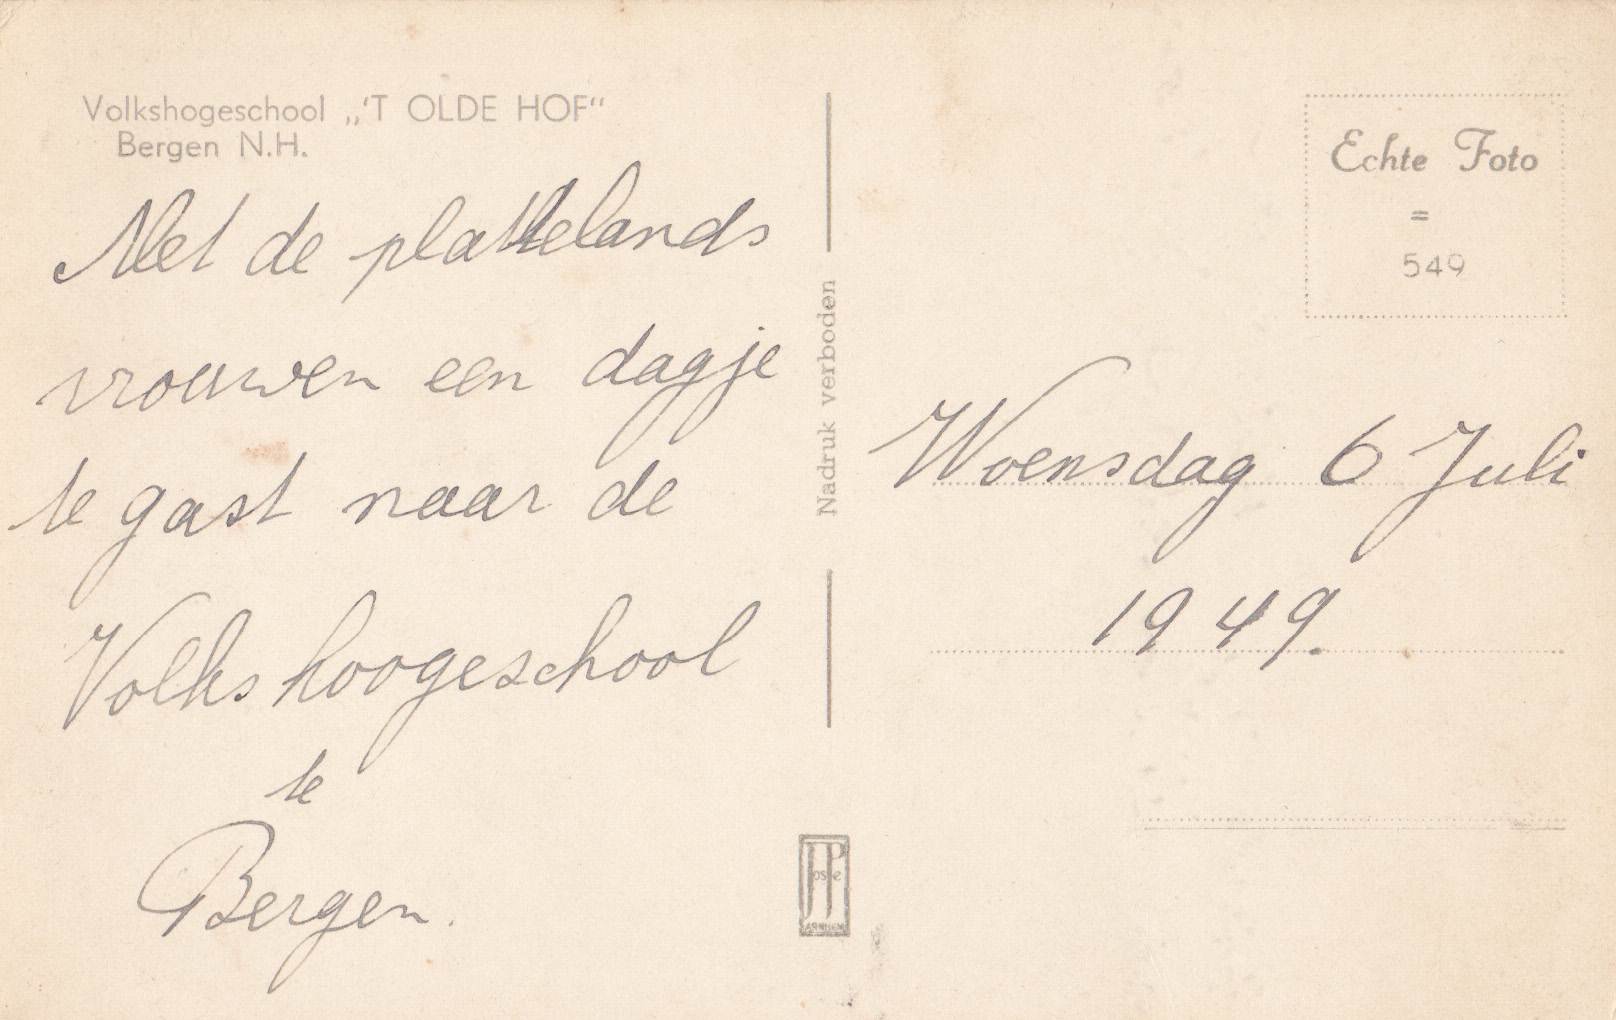 Volkshogeschool „'T OLDE HOF"
Bergen N.H.
Met de plattelands
vrouwen een dagje
te gast naar de
Volks hoogeschool
te
Bergen.
Nadruk verboden
JosPe
ARNHEM
Echte Foto
=
549
Woensdag 6 Juli
1949.